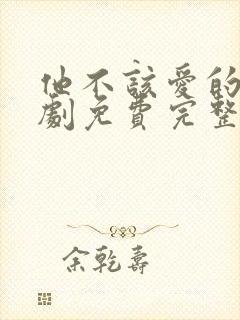 他不該愛的
劇免費完整
余乾壽